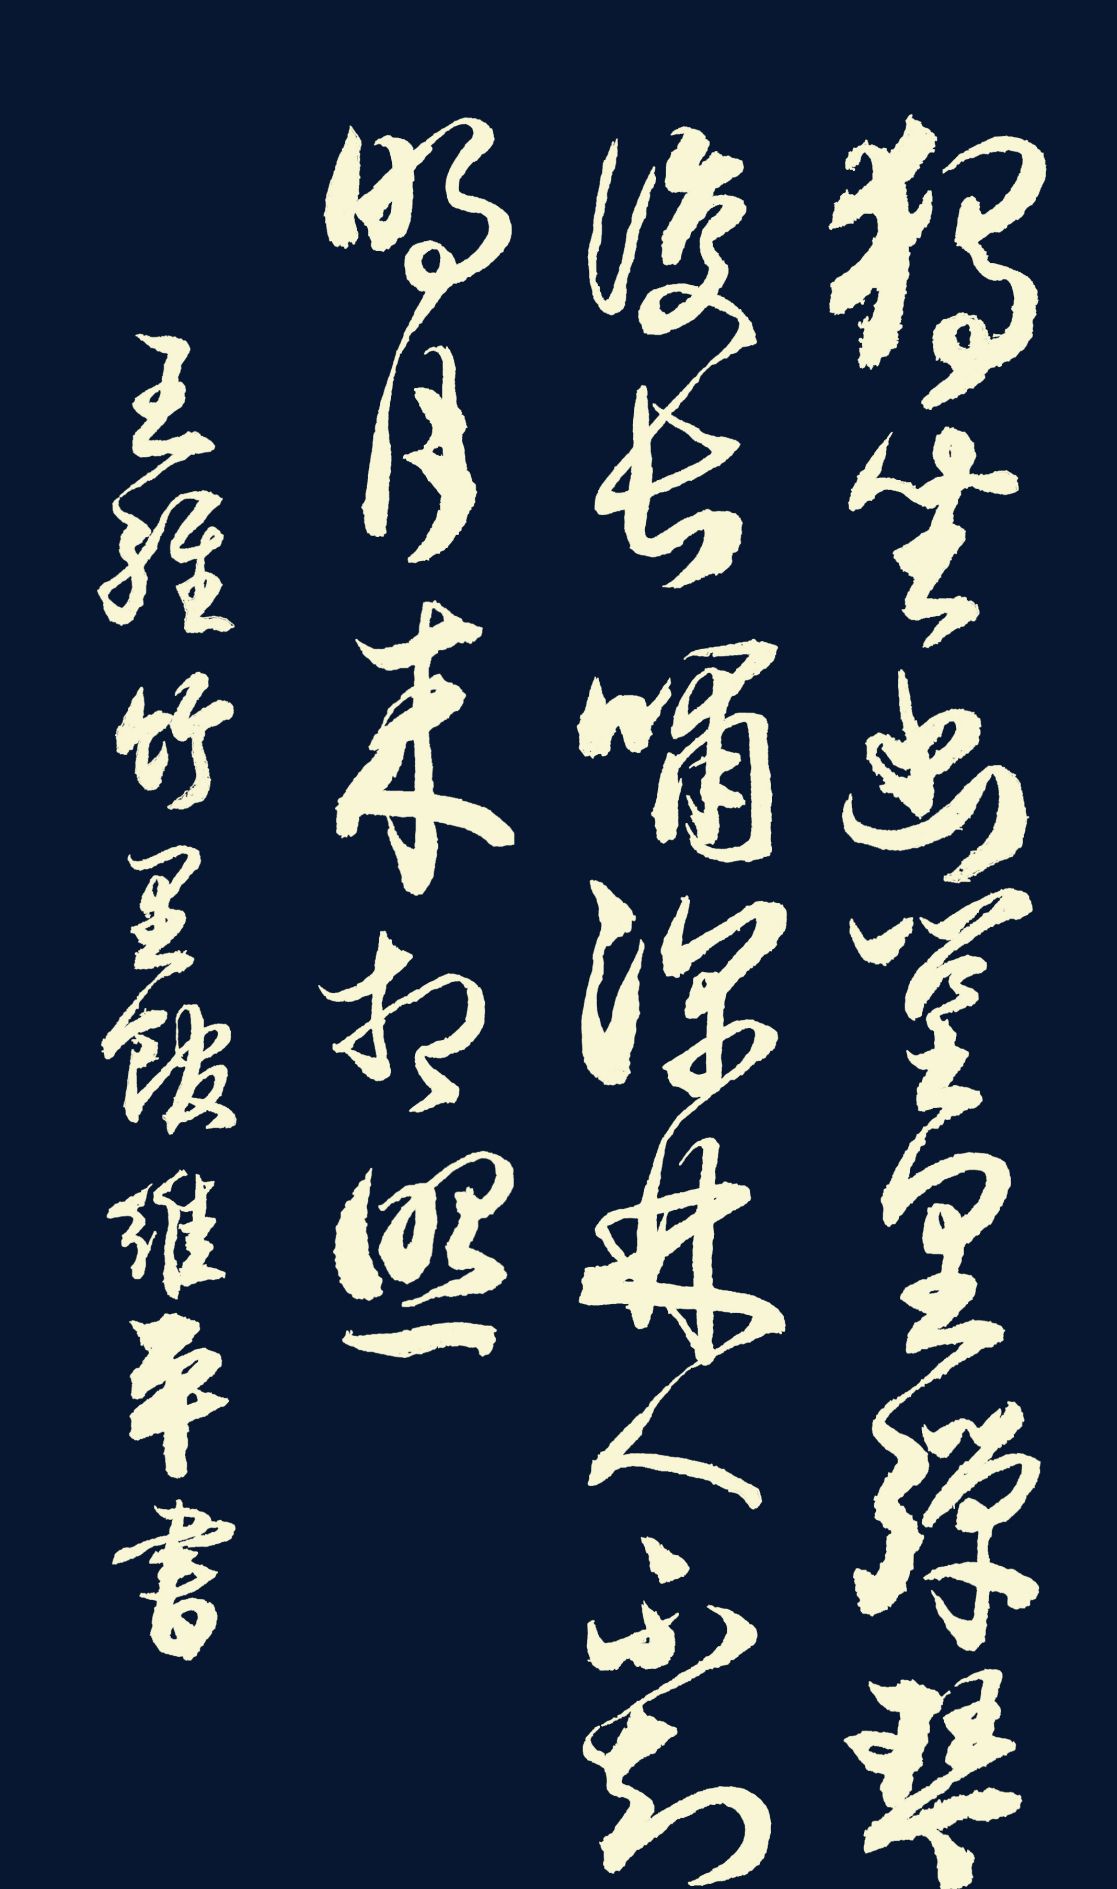 獨坐幽篁里彈琴
復長嘯深林人不知
明月来相照
王維竹里館維平書